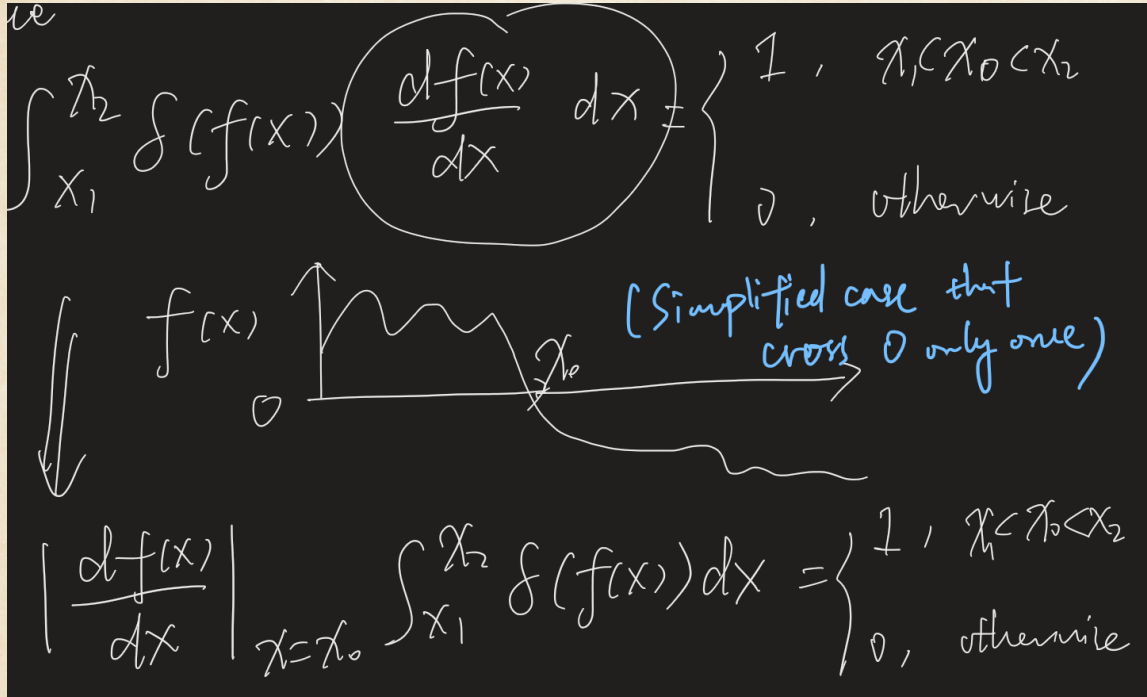 ve
∫_{x₁}^{x₂} δ(f(x)) df(x)/dx dx = { 1, x₁<x₀<x₂
0, otherwise
(Simplified case that
cross 0 only once)
f(x)
x₀
0
|df(x)/dx|_{x=x₀} ∫_{x₁}^{x₂} δ(f(x))dx = { 1, x₁<x₀<x₂
0, otherwise